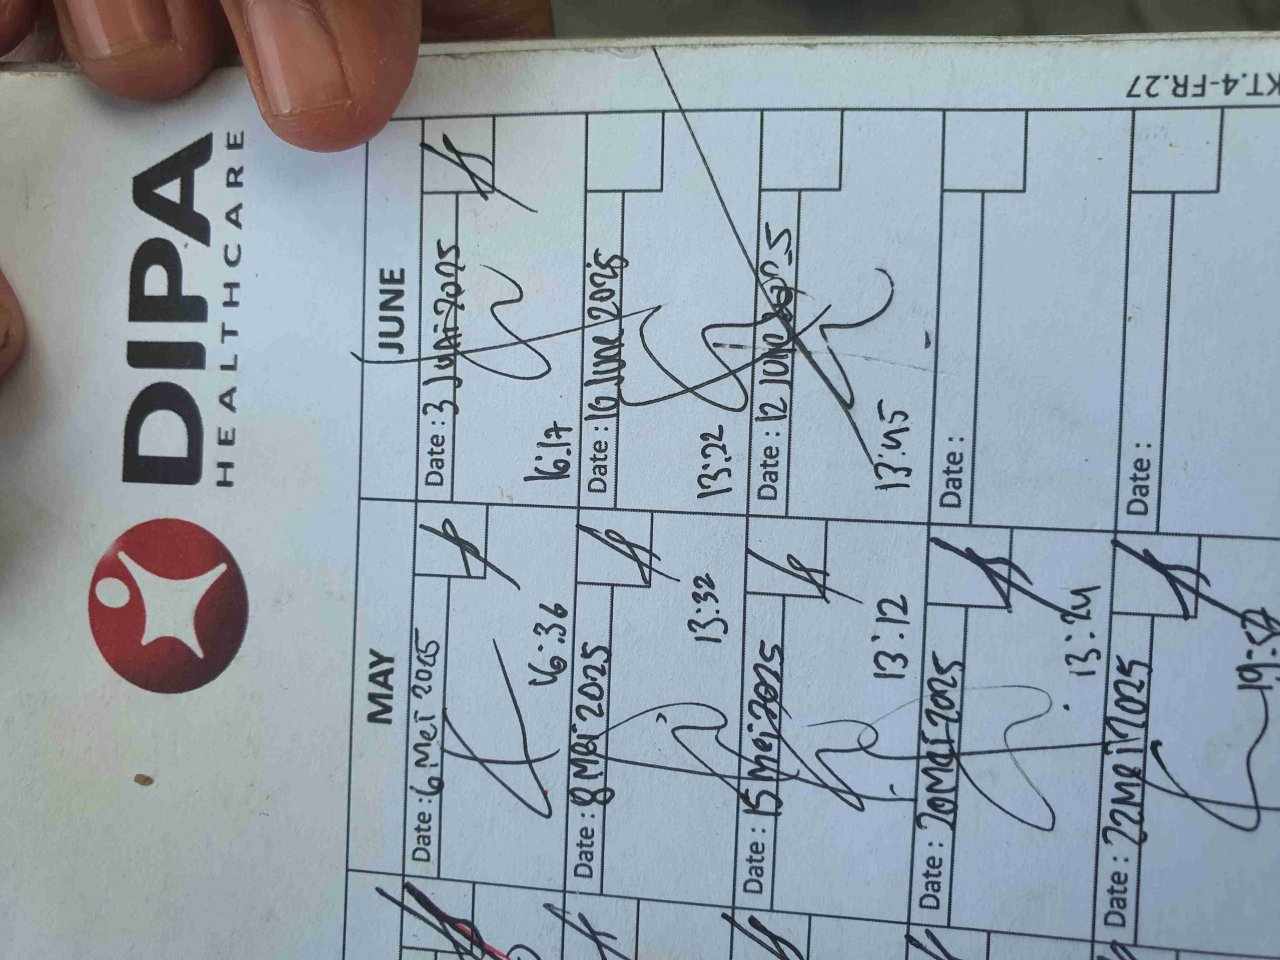 DIPA
HEALTHCARE
KT.4-FR.27
MAY
JUNE
Date : 6 Mei 2025
16:36
Date : 8 Mei 2025
13:32
Date : 15 Mei 2025
13:12
Date : 20 Mei 2025
13:24
Date : 22 Mei 2025
19:57
Date : 3 Juni 2025
16:17
Date : 10 June 2025
13:22
Date : 12 June 2025
13:45
Date :
Date :